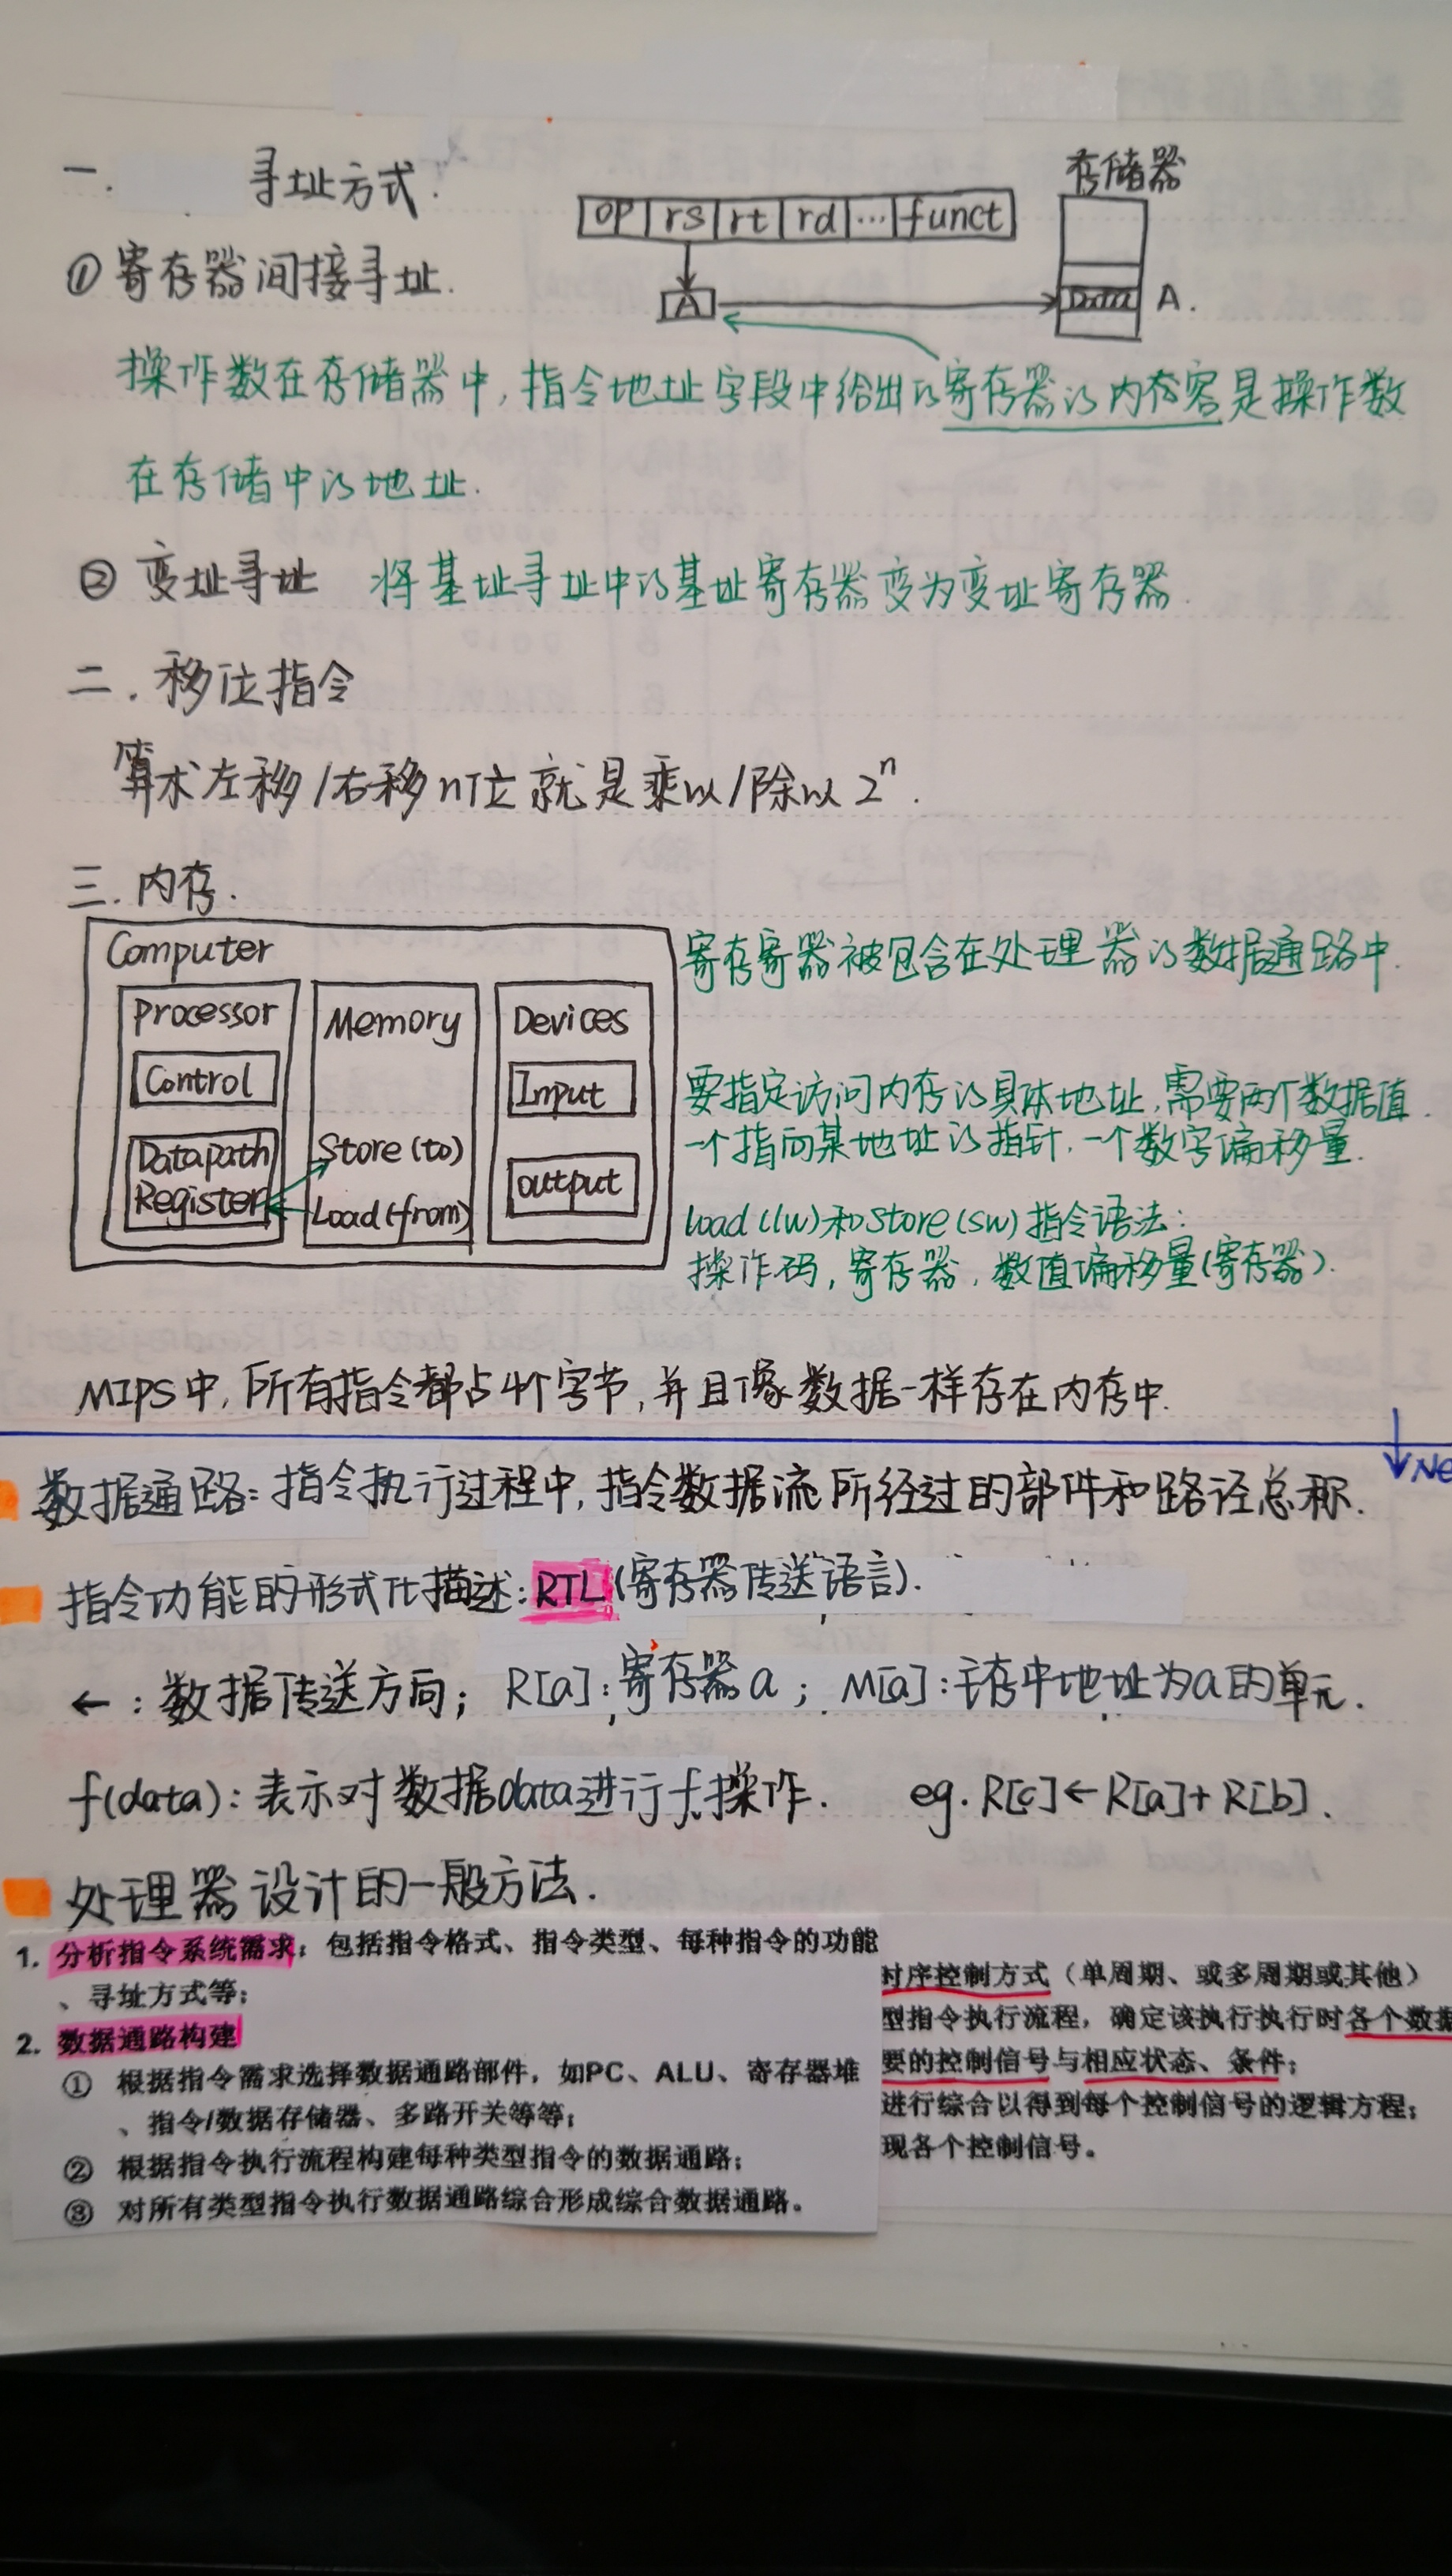 一. 寻址方式.
op rs rt rd … funct
存储器
A
Data A.
① 寄存器间接寻址.
操作数在存储器中,指令地址字段中给出的寄存器的内容是操作数
在存储中的地址.
② 变址寻址 将基址寻址中的基址寄存器变为变址寄存器.
二. 移位指令
算术左移/右移n位就是乘以/除以2ⁿ.
三. 内存.
Computer
Processor
Control
Datapath
Register
Memory
Store (to)
Load (from)
Devices
Input
output
寄存寄器被包含在处理器的数据通路中.
要指定访问内存的具体地址,需要两个数据值.
一个指向某地址的指针,一个数字偏移量.
load (lw) 和 Store (sw) 指令语法:
操作码, 寄存器, 数值偏移量(寄存器).
MIPS中,所有指令都占4个字节,并且像数据一样存在内存中.
↓ Ne
数据通路: 指令执行过程中,指令数据流所经过的部件和路径总称.
指令功能的形式化描述: RTL (寄存器传送语言).
← : 数据传送方向; R[a]: 寄存器a; M[a]: 主存中地址为a的单元.
f(data): 表示对数据data进行f操作. eg. R[c]←R[a]+R[b].
处理器设计的一般方法.
1. 分析指令系统需求: 包括指令格式、指令类型、每种指令的功能
、寻址方式等;
2. 数据通路构建
① 根据指令需求选择数据通路部件, 如PC、ALU、寄存器堆
、指令/数据存储器、多路开关等等;
② 根据指令执行流程构建每种类型指令的数据通路;
③ 对所有类型指令执行数据通路综合形成综合数据通路。
时序控制方式（单周期、或多周期或其他）
型指令执行流程, 确定该执行执行时各个数据
要的控制信号与相应状态、条件;
进行综合以得到每个控制信号的逻辑方程;
现各个控制信号。